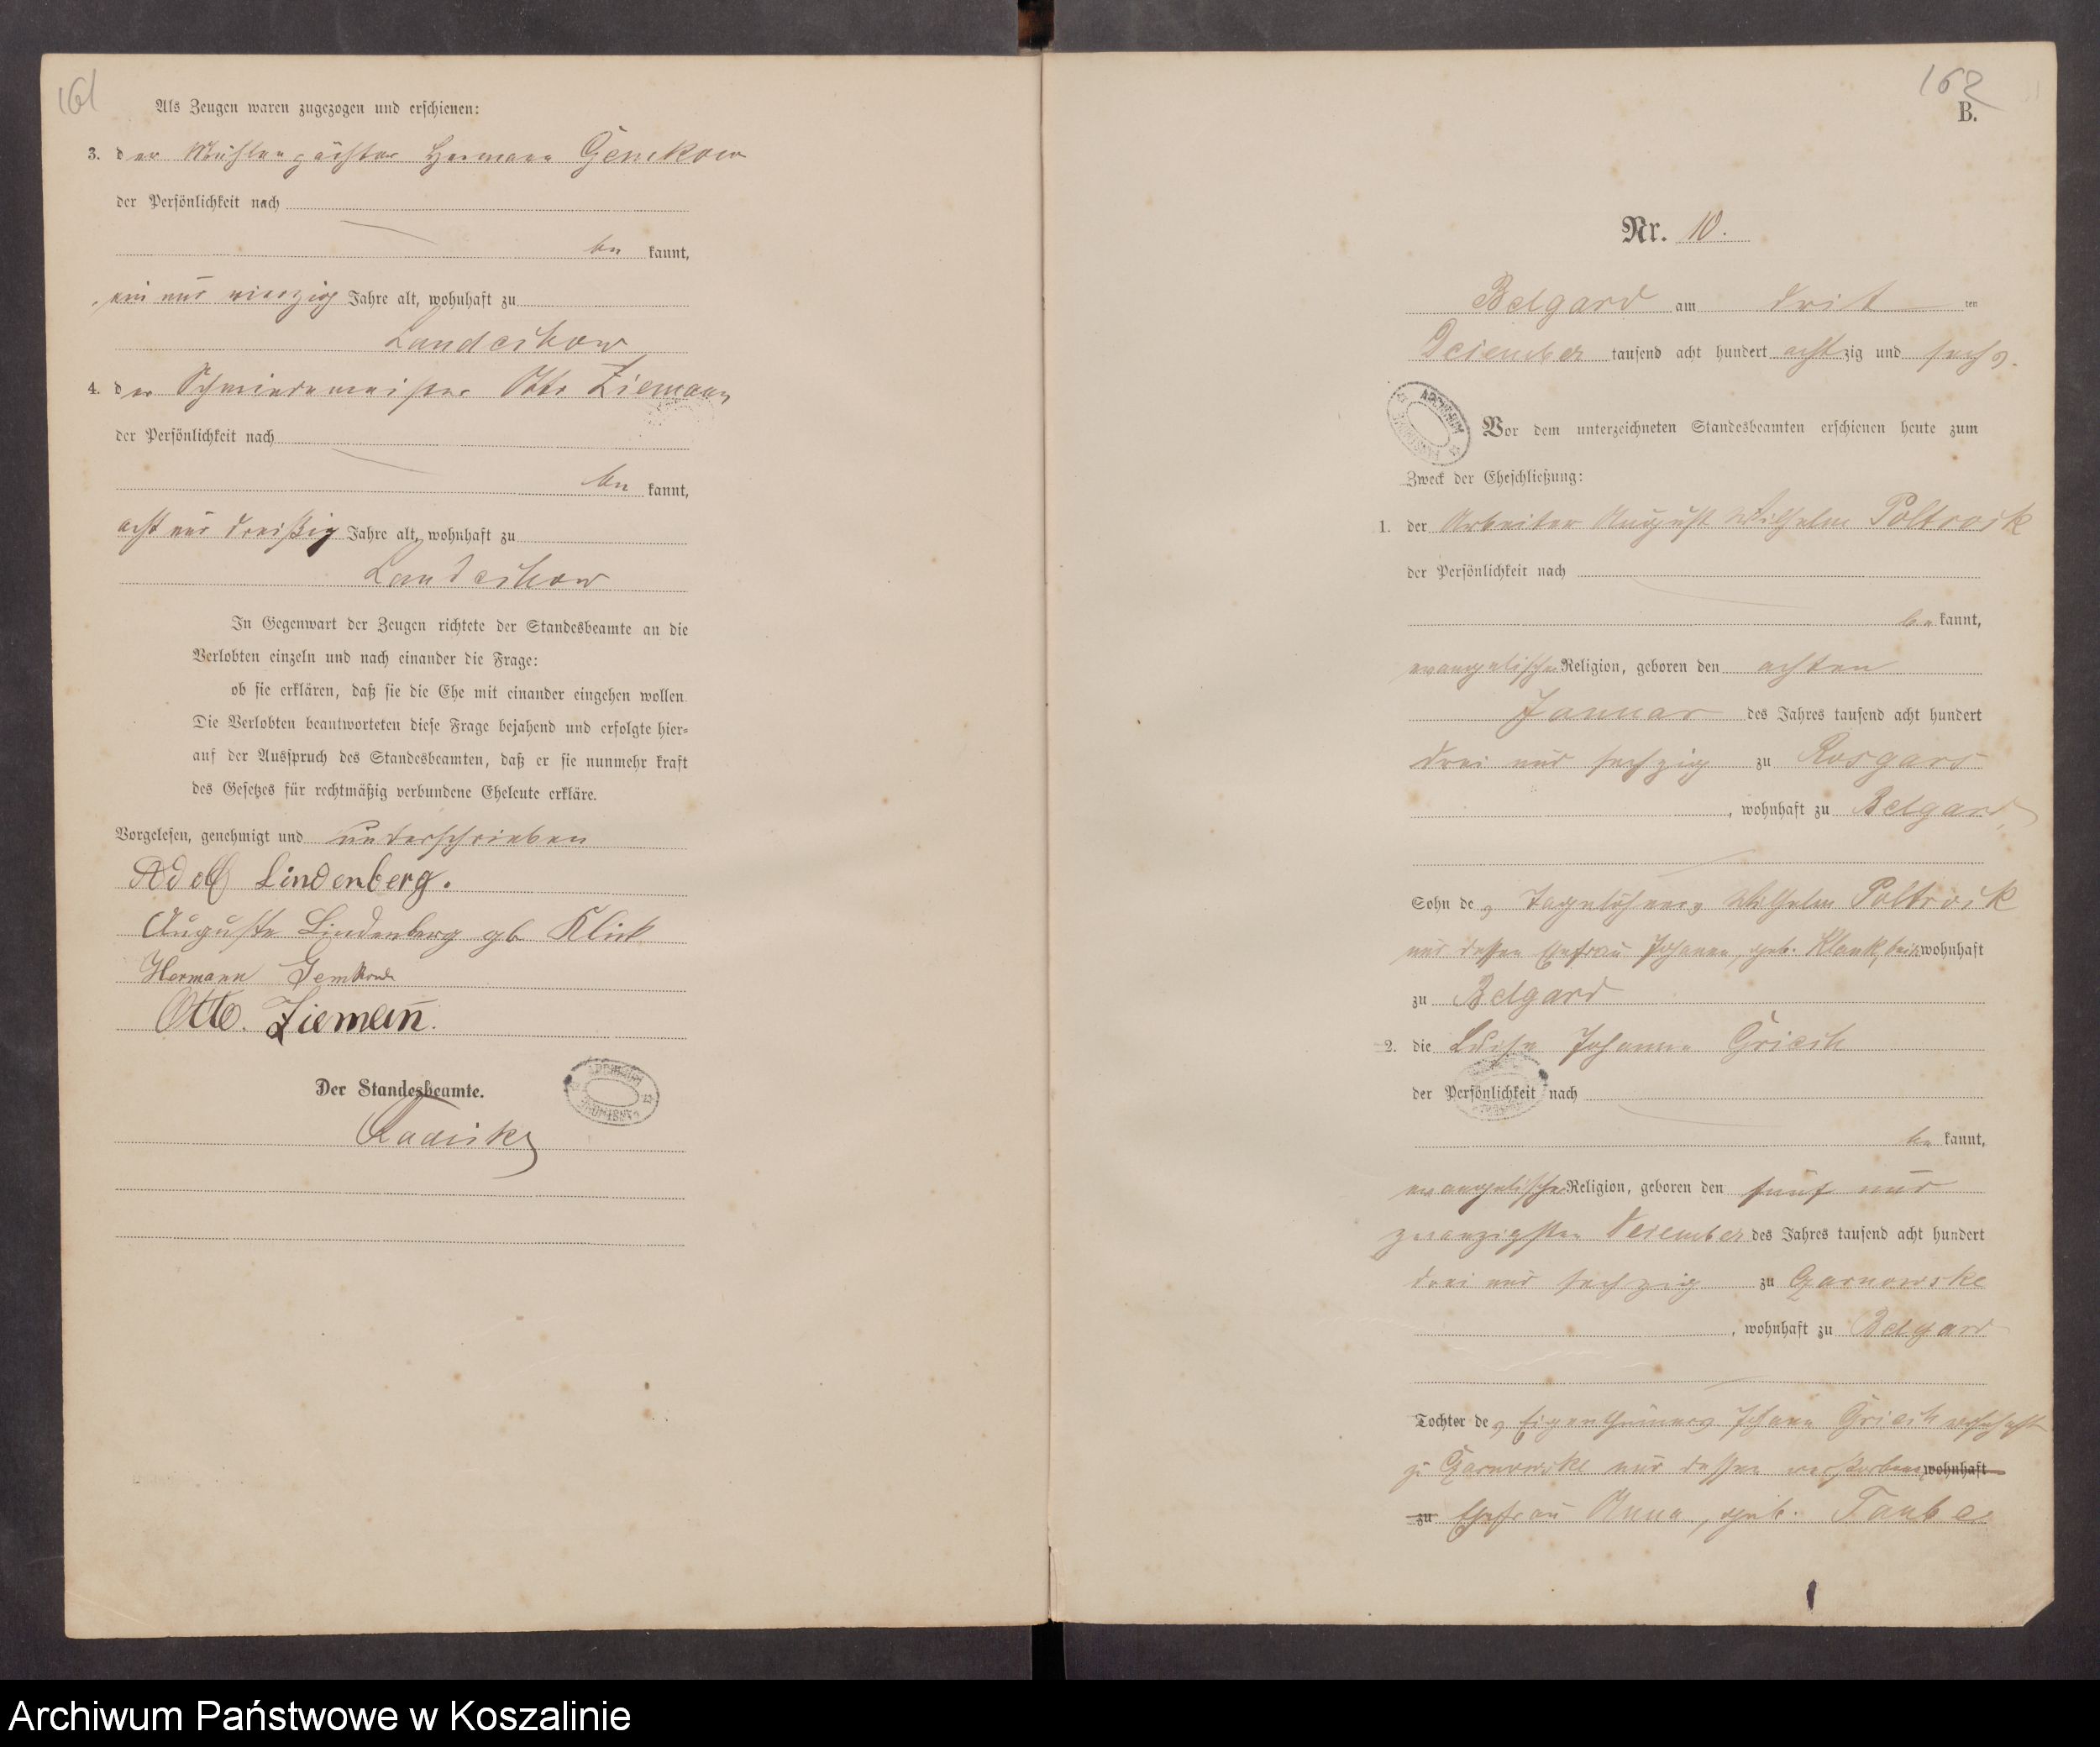 161
Als Zeugen waren zugezogen und erschienen:
3. der Mühlenpächter Hermann Gemkow
der Persönlichkeit nach
be kannt,
ein und vierzig Jahre alt, wohnhaft zu
Landechow
4. der Schmiedemeister Otto Ziemann
der Persönlichkeit nach
be kannt,
acht und dreißig Jahre alt, wohnhaft zu
Landechow
In Gegenwart der Zeugen richtete der Standesbeamte an die
Verlobten einzeln und nach einander die Frage:
ob sie erklären, daß sie die Ehe mit einander eingehen wollen.
Die Verlobten beantworteten diese Frage bejahend und erfolgte hier-
auf der Ausspruch des Standesbeamten, daß er sie nunmehr kraft
des Gesetzes für rechtmäßig verbundene Eheleute erkläre.
Vorgelesen, genehmigt und unterschrieben
Adolf Lindenberg.
Auguste Lindenberg gb Klick
Hermann Gemkow
Otto. Ziemann.
Der Standesbeamte.
162
B.
Nr. 10.
Belgard am dritten
Dezember tausend acht hundert achtzig und sechs.
ARCHIWUM
Vor dem unterzeichneten Standesbeamten erschienen heute zum
Zweck der Eheschließung:
1. der Arbeiter August Wilhelm Poltrock
der Persönlichkeit nach
be kannt,
evangelischer Religion, geboren den achten
Januar des Jahres tausend acht hundert
drei und sechzig zu Rosgars
, wohnhaft zu Belgard,
Sohn des Tagelöhners Wilhelm Poltrock
und dessen Ehefrau Johanne, geb. Klank, beide wohnhaft
zu Belgard
2. die Luise Johanne Griech
der Persönlichkeit nach
be kannt,
evangelischer Religion, geboren den fünf und
zwanzigsten Dezember des Jahres tausend acht hundert
drei und sechzig zu Czarnowske
, wohnhaft zu Belgard
Tochter des Eigenthümers Johann Griech wohnhaft
zu Czarnowske und dessen verstorbene wohnhaft
zu Ehefrau Anna, geb. Taube
Archiwum Państwowe w Koszalinie